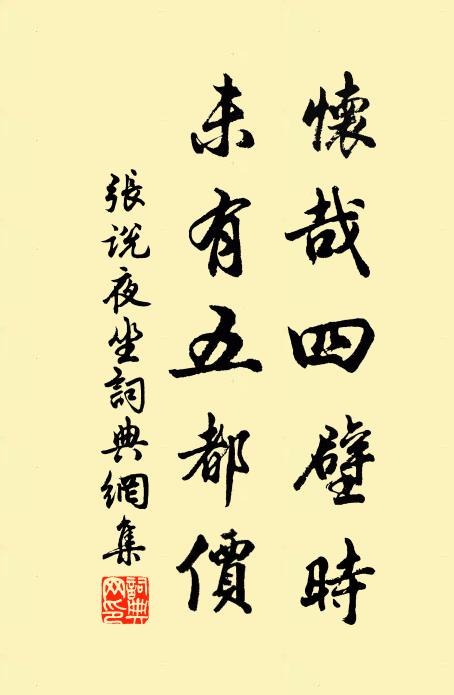 懷哉四壁時
未有五都價
張說夜坐詞典網集
詞典網印